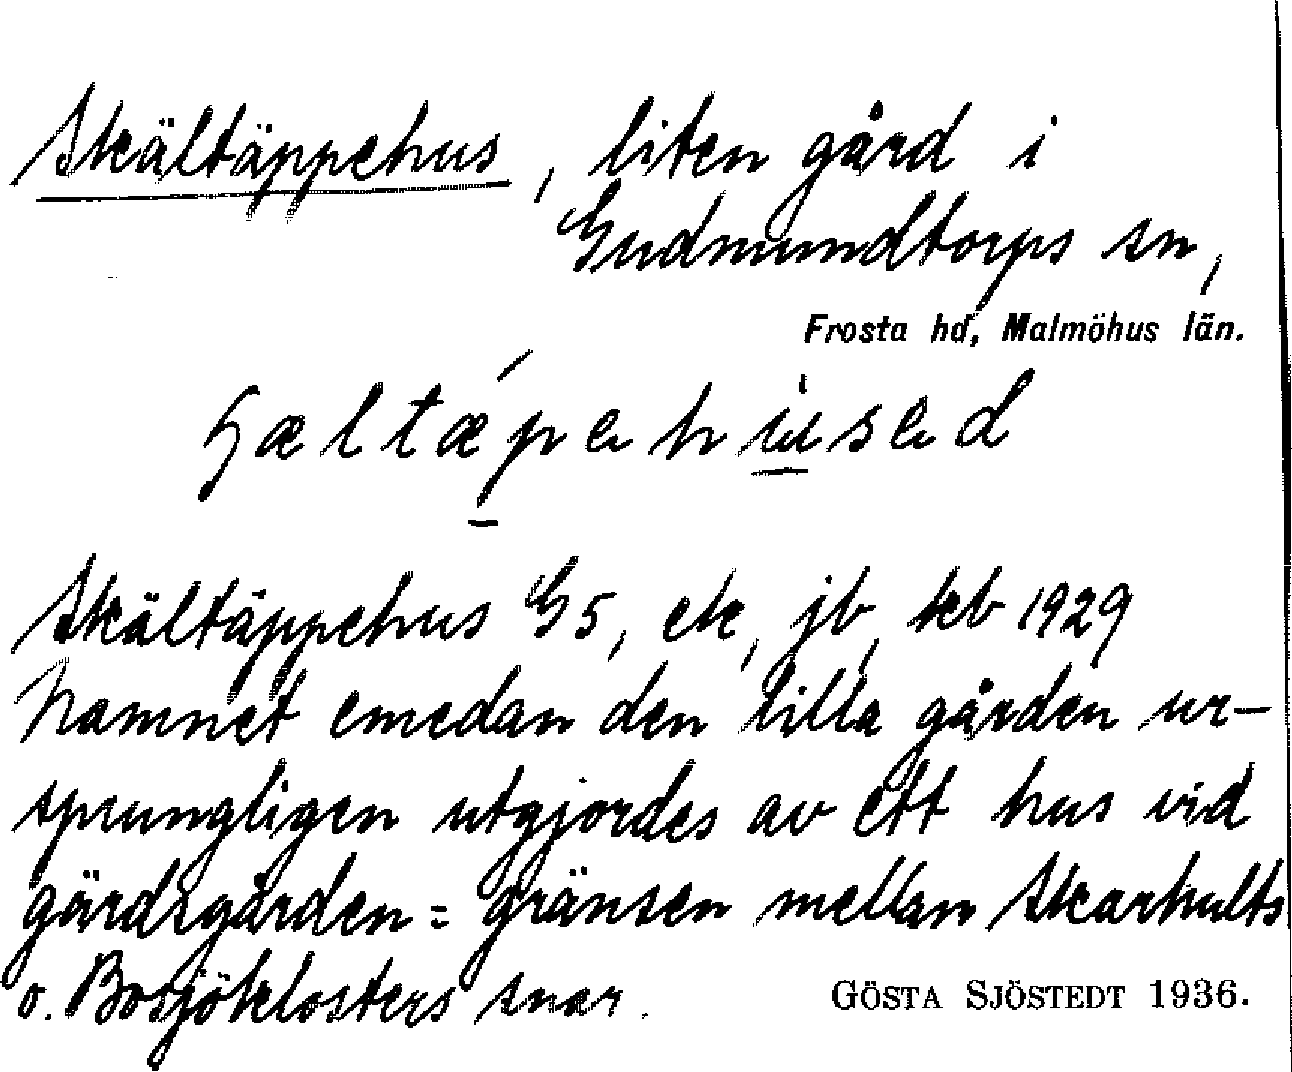 Skältäppehus, liten gård i
Gudmundtorps sn,
Frosta hd, Malmöhus län.
Skältäppehus G5, ek, jb, kb 1929
Namnet emedan den lilla gården ur-
sprungligen utgjordes av ett hus vid
gärdsgården = gränsen mellan Skarhults
o. Bosjöklosters snar.
GÖSTA SJÖSTEDT 1936.